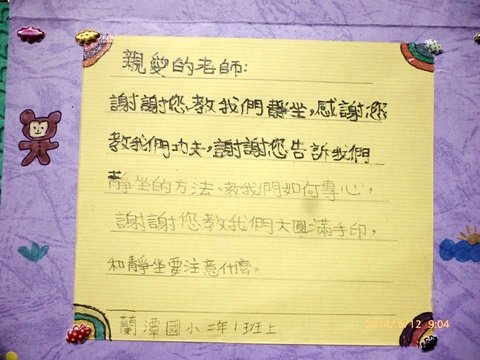 親愛的老師:
謝謝您、教我們靜坐,感謝您
教我們功夫,謝謝您告訴我們
靜坐的方法、教我們如何專心,
謝謝您教我們大圓滿手印,
和靜坐要注意什麼。
蘭潭國小二年1班上
2014/ /12 9:04